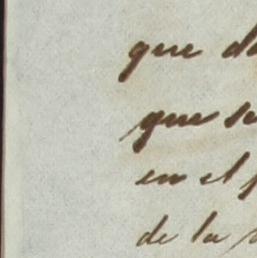 que
que se
en el
de la